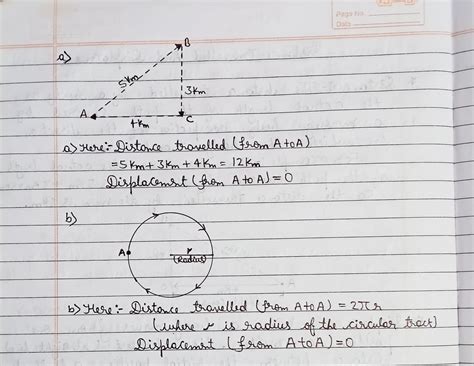 Page No.
Date
a)
B
5Km
3Km
A
C
4Km
a) Here:- Distance travelled (from A to A)
= 5Km + 3Km + 4Km = 12Km
Displacement (from A to A) = 0
b)
A
r
(Radius)
b) Here:- Distance travelled (from A to A) = 2πr
(where r is radius of the circular tract)
Displacement (from A to A) = 0